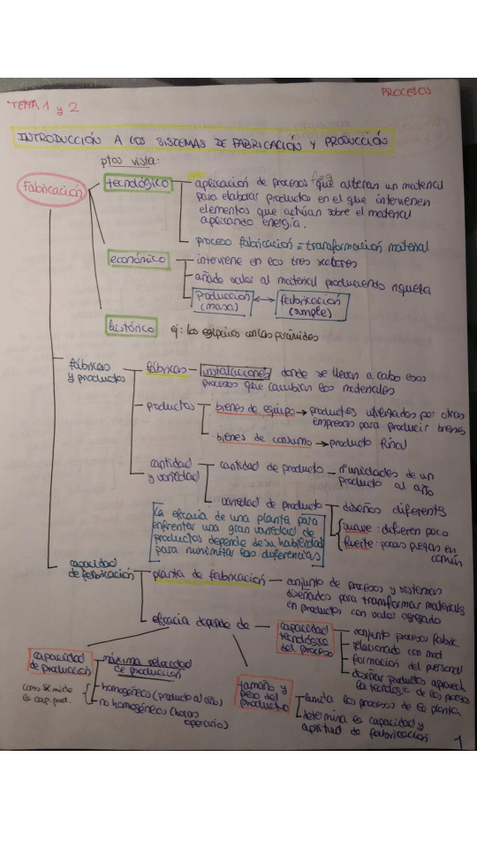 TEMA 1 y 2
PROCESOS
INTRODUCCIÓN A LOS SISTEMAS DE FABRICACIÓN Y PRODUCCIÓN
ptos vista:
Fabricación
tecnológico
aplicación de procesos que alteran un material
para elaborar producto en el que intervienen
elementos que actúan sobre el material
aplicando energía.
proceso fabricación = transformación material
económico
interviene en los tres sectores
añade valor al material produciendo riqueza
producción ↔ fabricación
(masa) (simple)
histórico
ej: los egipcios con las pirámides
fábricas
y productos
fábricas — instalaciones donde se llevan a cabo esos
procesos que cambian los materiales
productos
bienes de equipo → productos utilizados por otras
empresas para producir bienes
bienes de consumo → producto final
cantidad
y variedad
cantidad de producto — nº unidades de un
producto al año
variedad de producto
diseños diferents
suave: difieren poco
fuerte: pocas piezas en
común
la eficacia de una planta para
enfrentar una gran variedad de
productos depende de su habilidad
para minimizar las diferencias
capacidad
de fabricación
planta de fabricación — conjunto de procesos y sistemas
diseñados para transformar materials
en productos con valor agregado
eficacia depende de
capacidad
tecnológica
del proceso
conjunto procesos fabric.
relacionado con mat
formación del personal
diseñar productos aprovech
la tecnolog. de los proces
capacidad
de producción
máxima velocidad
de producción
como se mide
la cap. prod.
homogéneos (producto al año)
no homogéneos (horas
operario)
tamaño y
peso del
producto
los procesos de la planta
determina la capacidad y
aptitud de fabricación
1